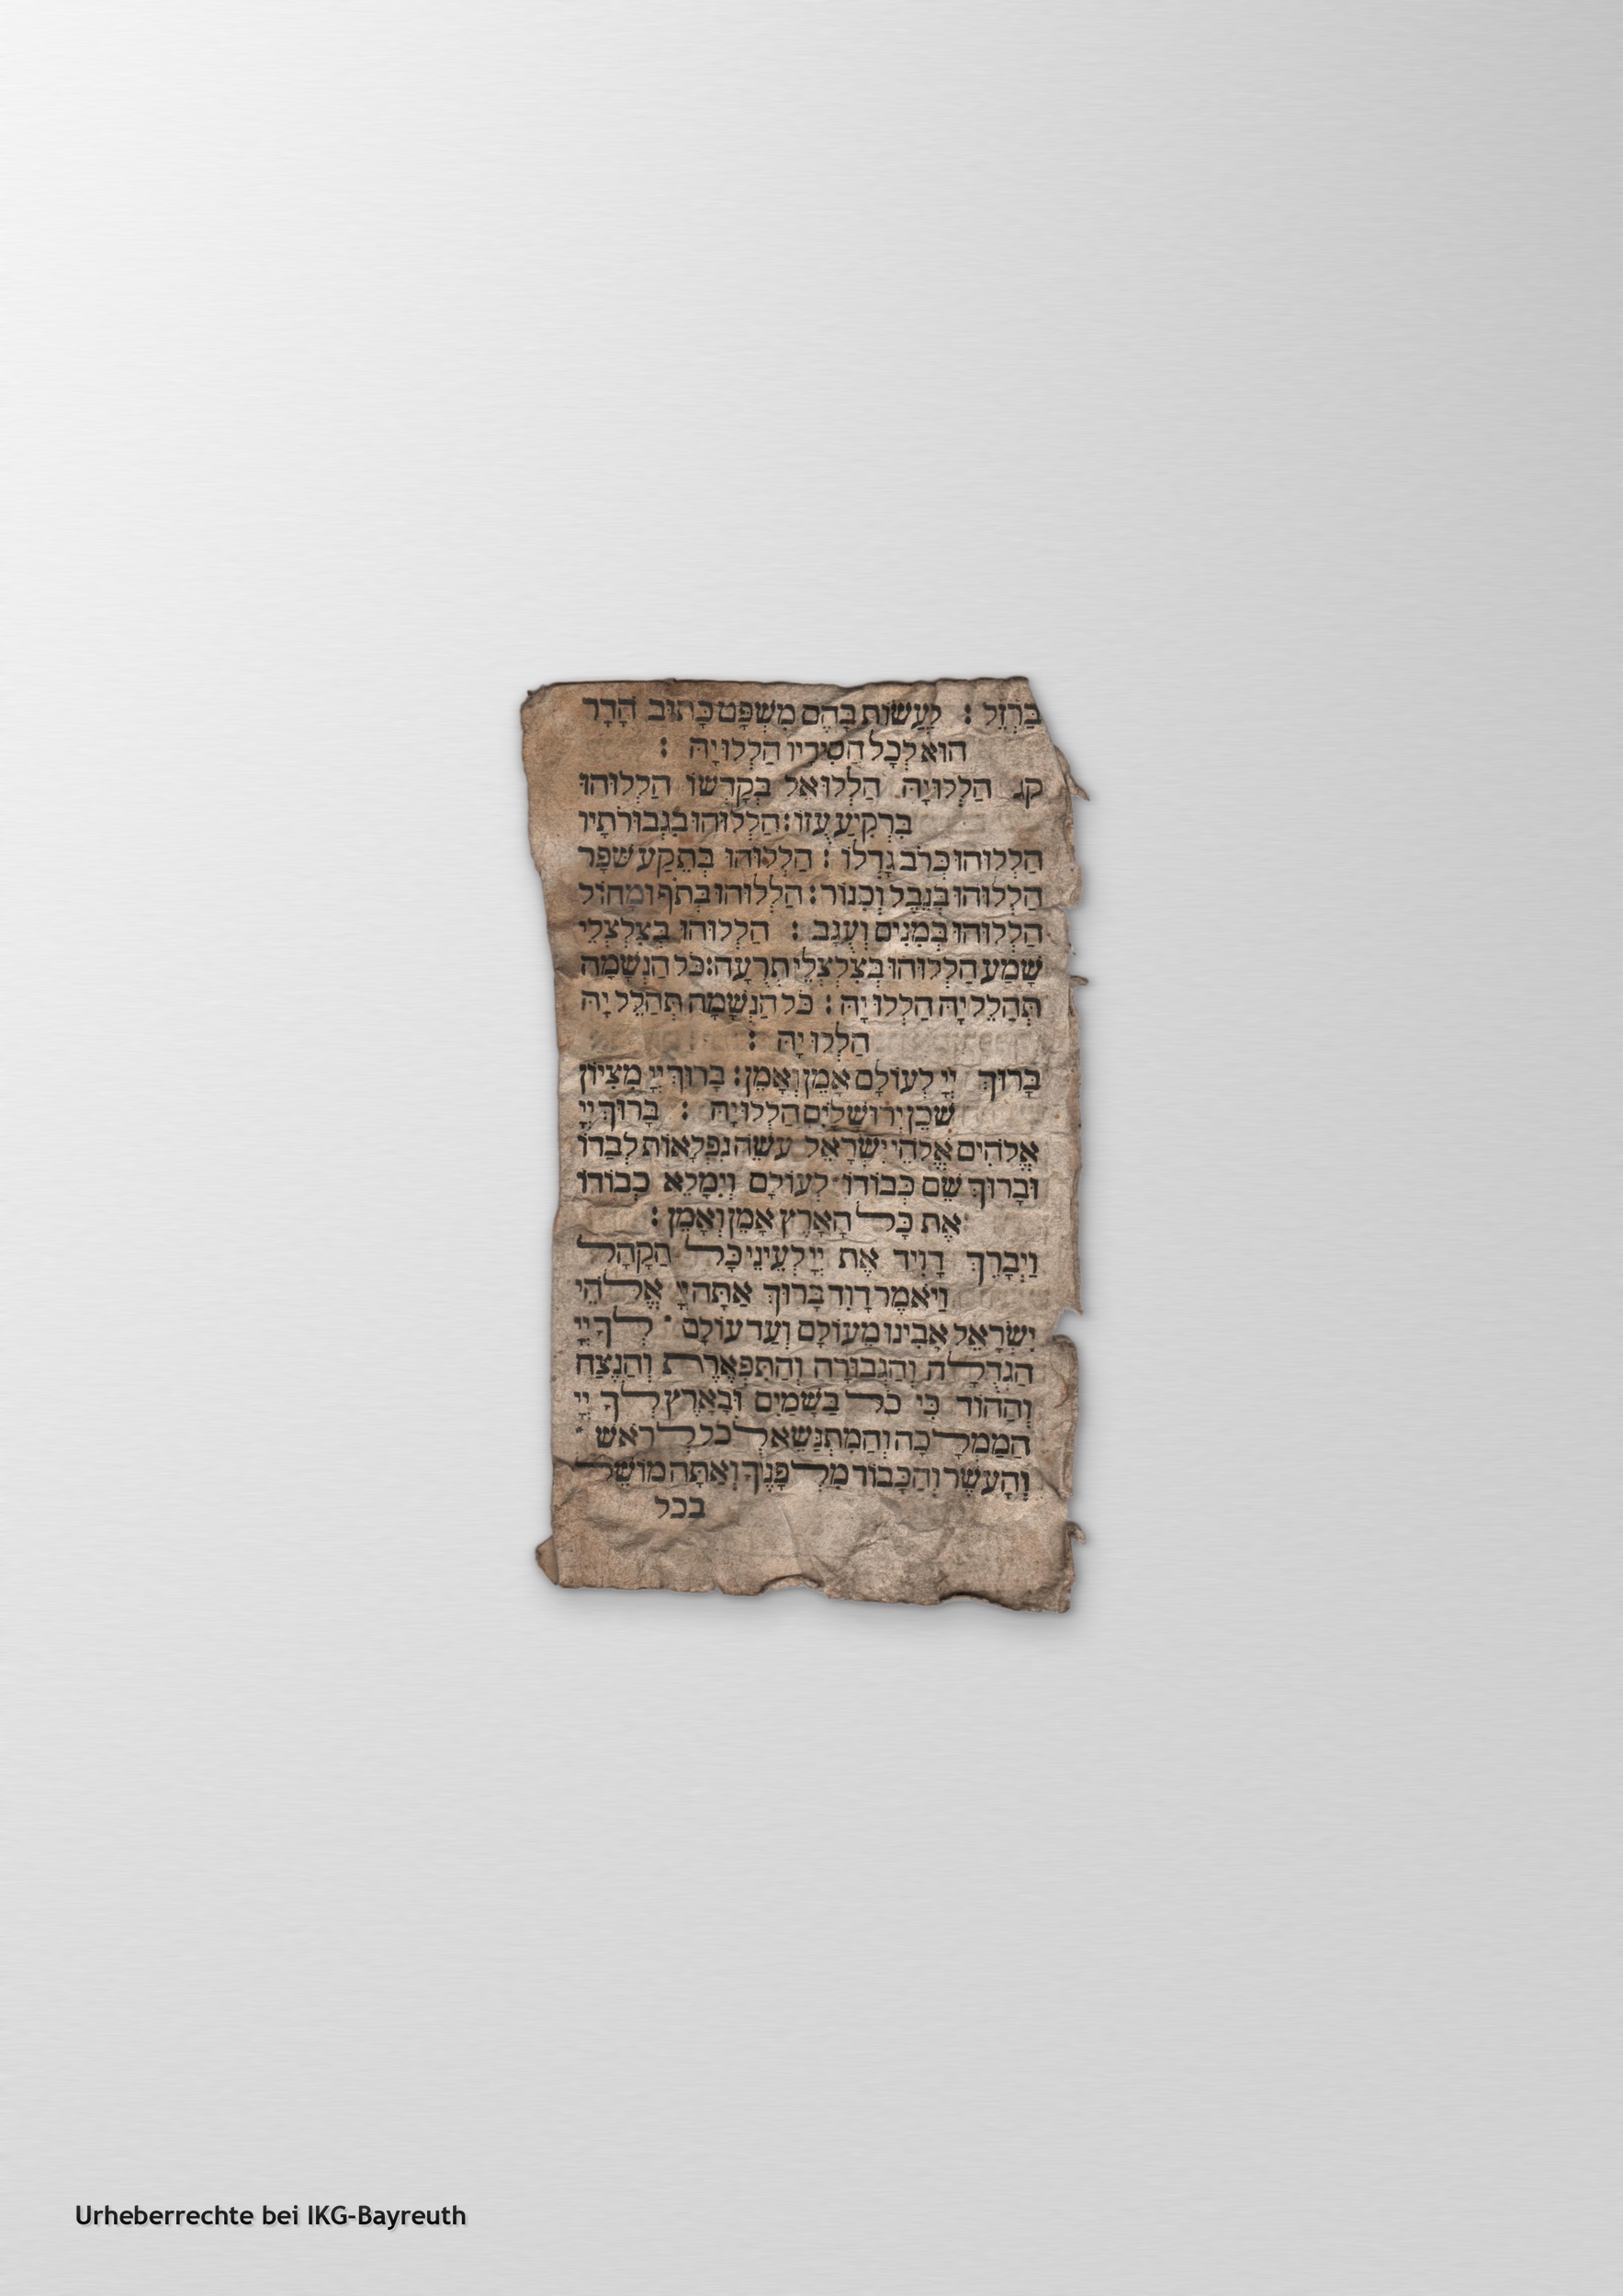 בַּרְזֶל : לַעֲשׂוֹת בָּהֶם מִשְׁפָּט כָּתוּב הָדָר
הוּא לְכָל חֲסִידָיו הַלְלוּיָהּ :
קנ הַלְלוּיָהּ הַלְלוּ אֵל בְּקָדְשׁוֹ הַלְלוּהוּ
בִּרְקִיעַ עֻזּוֹ : הַלְלוּהוּ בִגְבוּרֹתָיו
הַלְלוּהוּ כְּרֹב גֻּדְלוֹ : הַלְלוּהוּ בְּתֵקַע שׁוֹפָר
הַלְלוּהוּ בְּנֵבֶל וְכִנּוֹר : הַלְלוּהוּ בְתֹף וּמָחוֹל
הַלְלוּהוּ בְּמִנִּים וְעֻגָב : הַלְלוּהוּ בְצִלְצְלֵי
שָׁמַע הַלְלוּהוּ בְּצִלְצְלֵי תְרוּעָה : כֹּל הַנְּשָׁמָה
תְּהַלֵּל יָהּ הַלְלוּ יָהּ : כֹּל הַנְּשָׁמָה תְּהַלֵּל יָהּ
הַלְלוּ יָהּ :
בָּרוּךְ יְיָ לְעוֹלָם אָמֵן וְאָמֵן : בָּרוּךְ יְיָ מִצִּיּוֹן
שֹׁכֵן יְרוּשָׁלִָים הַלְלוּיָהּ : בָּרוּךְ יְיָ
אֱלֹהִים אֱלֹהֵי יִשְׂרָאֵל עֹשֵׂה נִפְלָאוֹת לְבַדּוֹ
וּבָרוּךְ שֵׁם כְּבוֹדוֹ לְעוֹלָם וְיִמָּלֵא כְבוֹדוֹ
אֶת כָּל הָאָרֶץ אָמֵן וְאָמֵן :
וַיְבָרֶךְ דָּוִיד אֶת יְיָ לְעֵינֵי כָּל הַקָּהָל
וַיֹּאמֶר דָּוִד בָּרוּךְ אַתָּה יְיָ אֱלֹהֵי
יִשְׂרָאֵל אָבִינוּ מֵעוֹלָם וְעַד עוֹלָם · לְךָ יְיָ
הַגְּדֻלָּה וְהַגְּבוּרָה וְהַתִּפְאֶרֶת וְהַנֵּצַח
וְהַהוֹד כִּי כֹל בַּשָּׁמַיִם וּבָאָרֶץ לְךָ יְיָ
הַמַּמְלָכָה וְהַמִּתְנַשֵּׂא לְכֹל לְרֹאשׁ ·
וְהָעֹשֶׁר וְהַכָּבוֹד מִלְּפָנֶיךָ וְאַתָּה מוֹשֵׁל
בכל
Urheberrechte bei IKG-Bayreuth